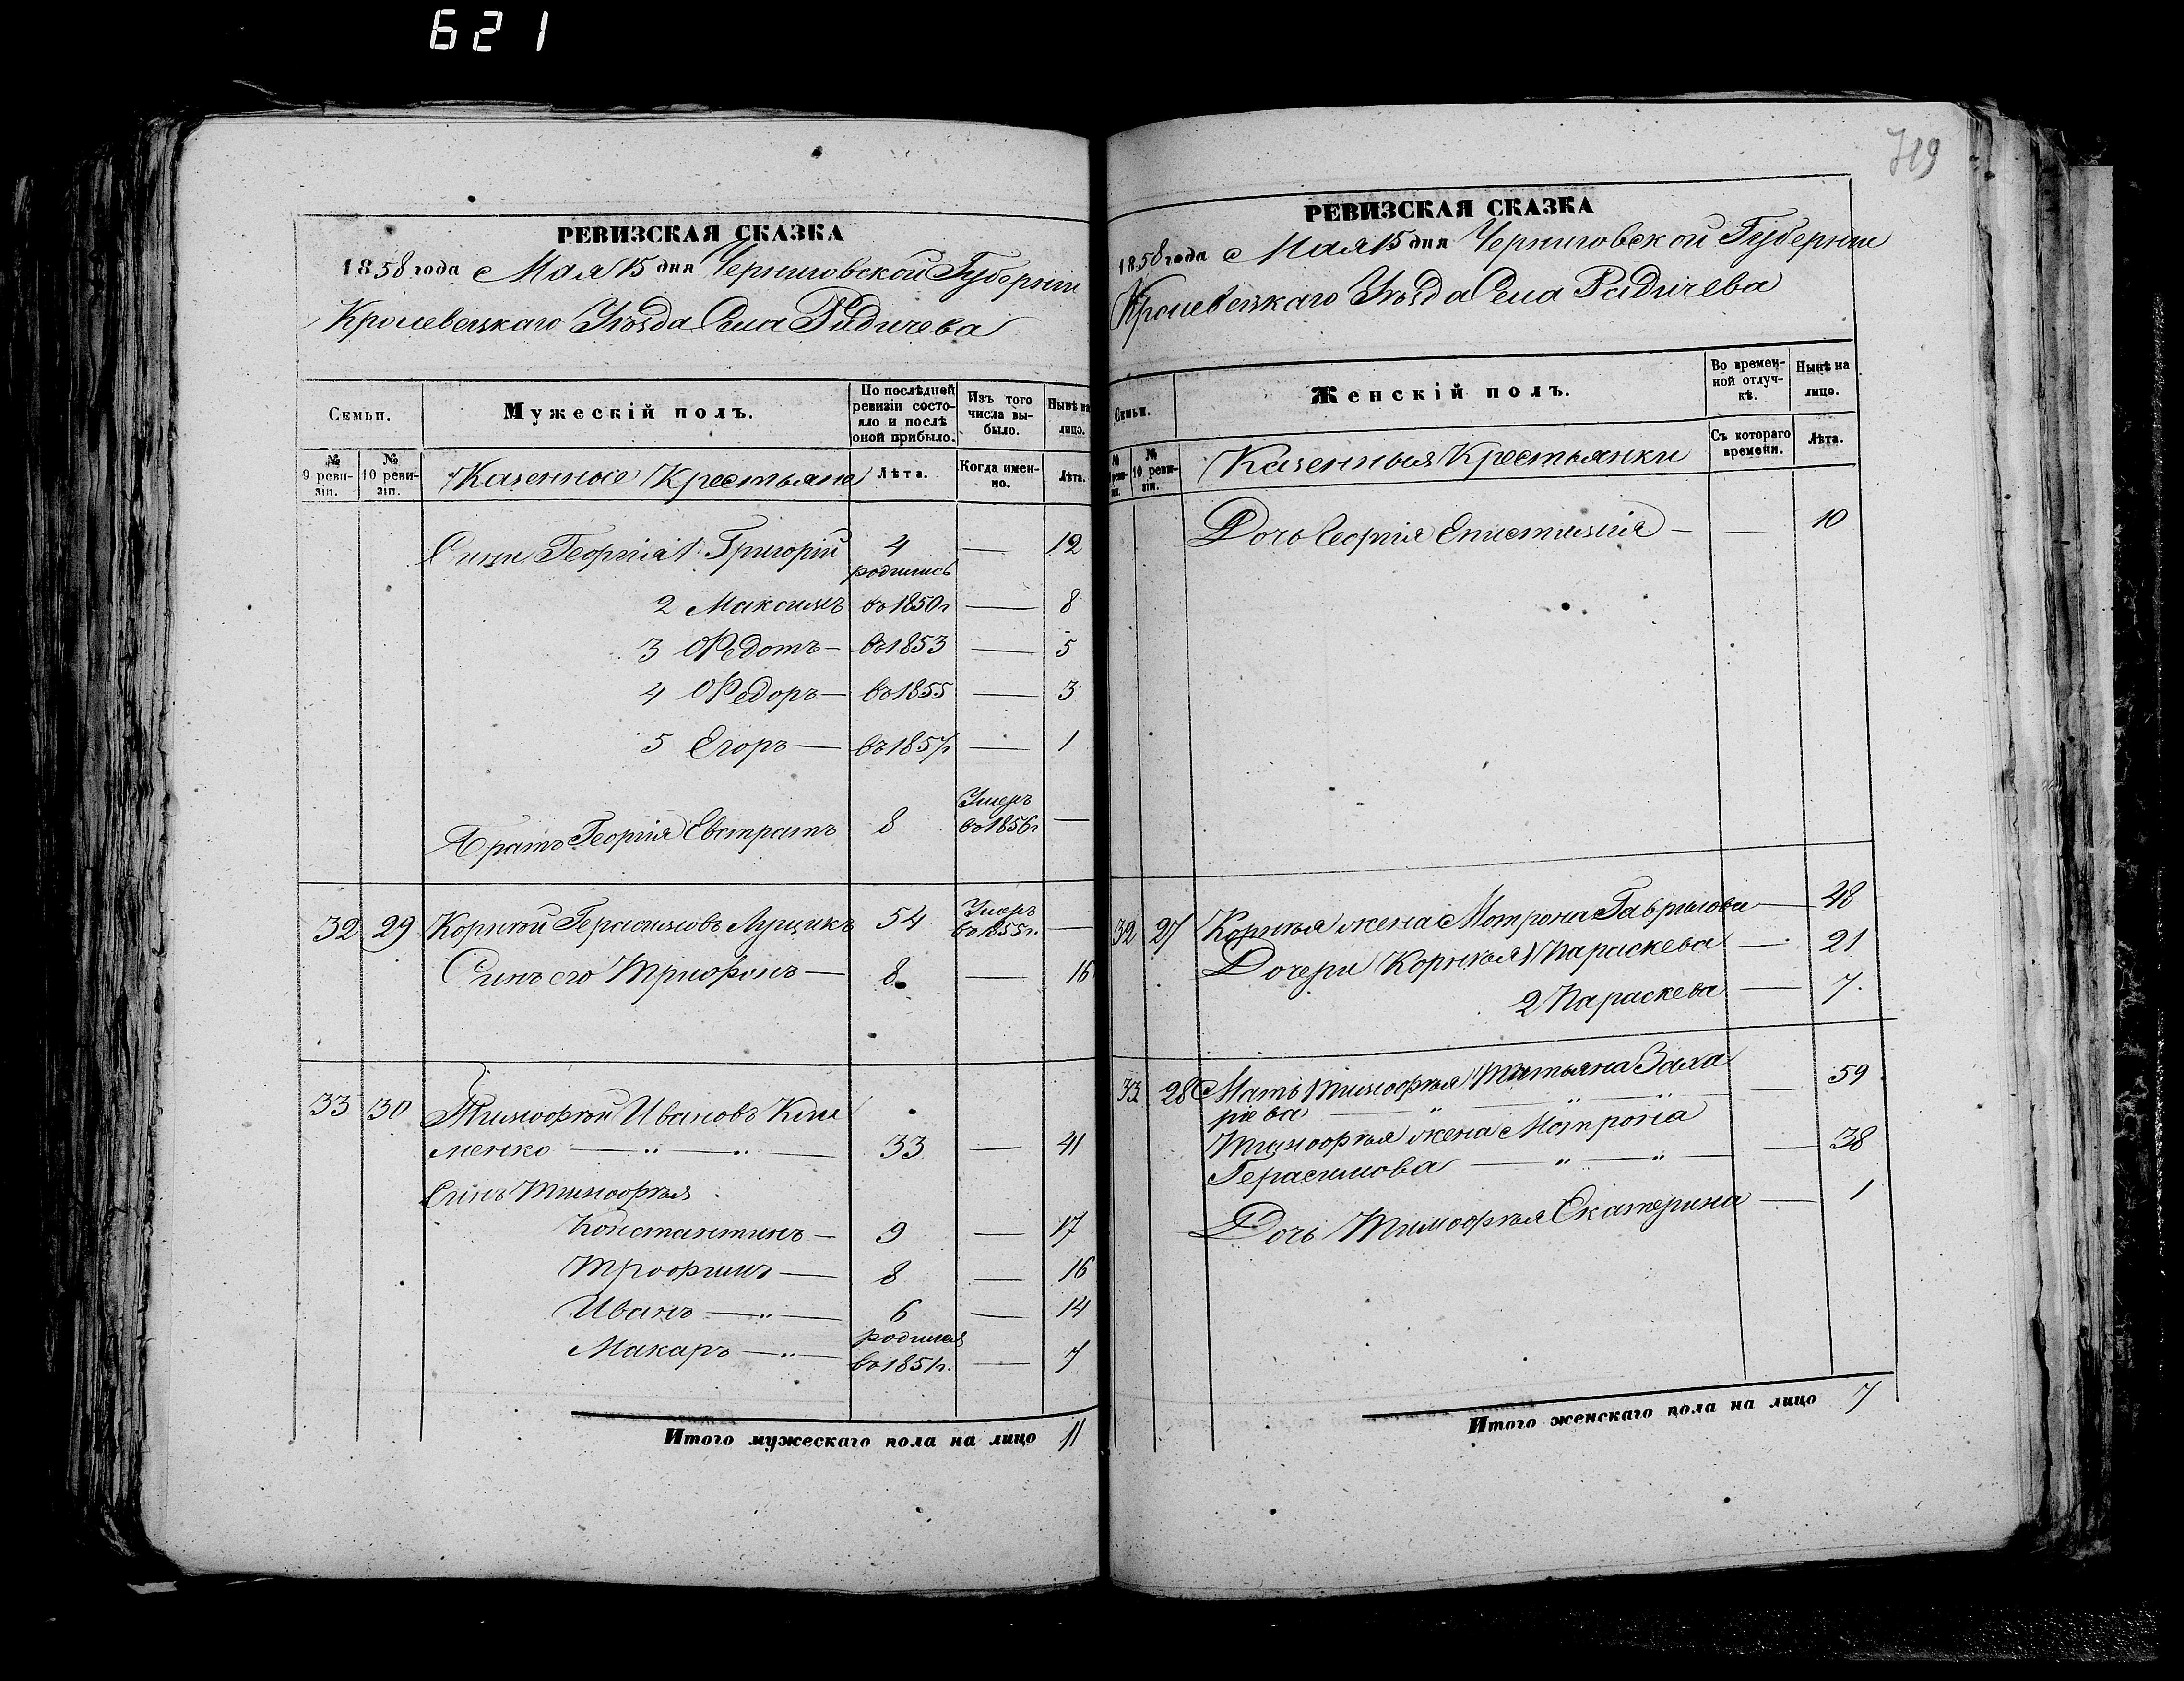 621
719
РЕВИЗСКАЯ СКАЗКА
1858 года Мая 15 дня Черниговской Губерніи
Кролевецкаго Уѣзда Села Радичева
Семьи.
Мужескій полъ.
По послѣдней ревизіи состояло и послѣ оной прибыло.
Изъ того числа выбыло.
Нынѣ на лицо.
№ 9 ревизіи.
№ 10 ревизіи.
Казенные Крестьяне
Лѣта.
Когда именно.
Лѣта.
Сыны Георгія 1 Григорій 4 — 12
родились
2 Максимъ въ 1850 г — 8
3 Федотъ — въ 1853 — 5
4 Федоръ — въ 1855 — 3
5 Егоръ — въ 1857 г — 1
Братъ Георгія Евстратъ 8 Умеръ въ 1856 г —
32 29 Корнѣй Герасимовъ Лущикъ 54 Умеръ въ 1855 г. —
Сынъ его Трифонъ — 8 — 16
33 30 Тимофѣй Ивановъ Кли
менко — „ — „ — 33 — 41
Сынъ Тимофѣя
Константинъ — 9 — 17
Трофимъ — 8 — 16
Иванъ — „ — 6 — 14
родился
Макаръ — „ — въ 1851 г. — 7
Итого мужескаго пола на лицо 11
РЕВИЗСКАЯ СКАЗКА
1858 года Мая 15 дня Черниговской Губерніи
Кролевецкаго Уѣзда Села Радичева
Семьи.
Женскій полъ.
Во временной отлучкѣ.
Нынѣ на лицо.
№ 9 ревизіи.
№ 10 ревизіи.
Казенныя Крестьянки
Съ котораго времени.
Лѣта.
Дочь Георгія Епистимія — — 10
32 27 Корнѣя жена Мотрона Гаврилова — 48
Дочери Корнѣя 1 Параскева — 21
2 Параскева — 7
33 28 Мать Тимофѣя Татьяна Заха
ріева — „ — „ — „ — 59
Тимофѣя жена Мотрона
Герасимова — „ — „ — — 38
Дочь Тимофѣя Екатерина — 1
Итого женскаго пола на лицо 7